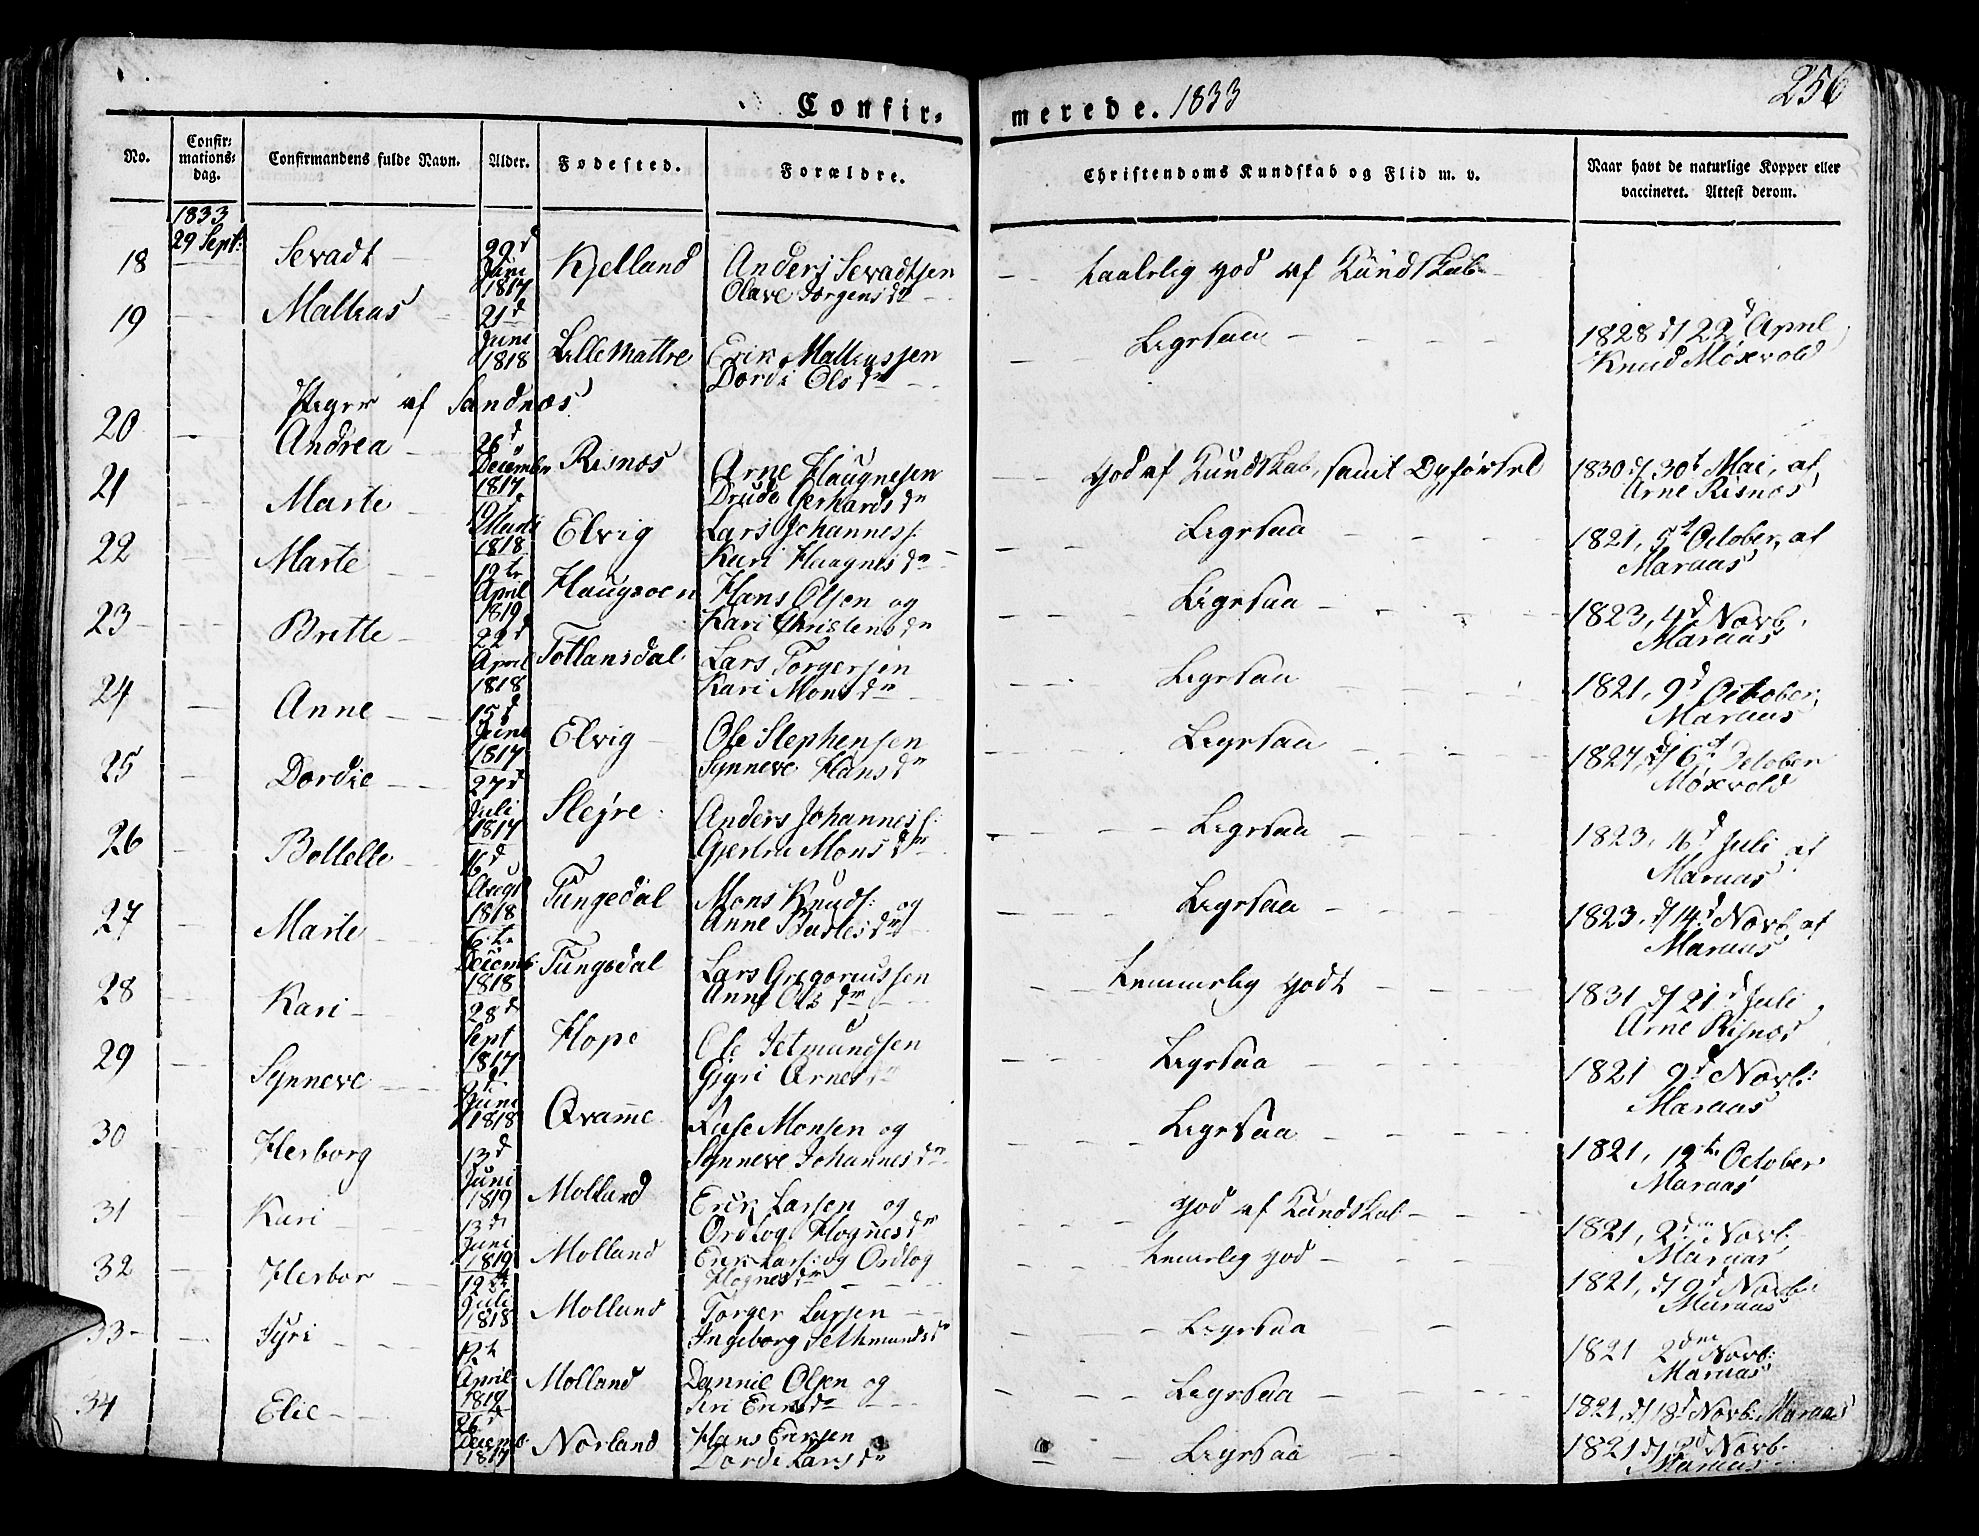 256
Confir- merede. 1833
No.
Confir-
mations-
dag.
Confirmandens fulde Navn.
Alder.
Fødested.
Forældre.
Christendoms Kundskab og Flid m. v.
Naar havt de naturlige Kopper eller
vaccineret. Attest derom.
1833
29 Sept:
18 Sevadt 22d Juni 1817 Kjelland Anders Sevadtsen
Olave Jørgens dr
taalelig god af Kundskab
19 Mathias 21d Juni 1818 Lille Mattre Erik Mathiassen
Dordi Ols dr
Ligesaa
1828 d/ 22d April
Knud Møxvold
Piger af Sandnæs
20 Andrea 26d Decembr 1817 Risnæs Arne Haugnesen
Drude Gerhards dr
god af Kundskab, samt Opførsel
1830 d/ 30t Mai, af
Arne Risnæs
21 Marte Marti 1818 Elvig Lars Johanness:
Kari Haagnes dr
Ligesaa
1821, 9t October, af
Maraas
22 Marte 12te April 1819 Haugsøen Hans Olsen og
Kari Christens dr
Ligesaa
1823, 4d Novb.
Maraas
23 Britte 22d April 1818 Totlansdal Lars Torgersen
Kari Mons dr
Ligesaa
1821, 9d October,
Maraas
24 Anne 15d Juni 1817 Elvig Ole Stephensen
Synneve Hans dr
Ligesaa
1827, d/ 6t October
Møxvold
25 Dordie 27d Juli 1817 Slejre Anders Johanness:
Gjertru Mons dr
Ligesaa
1823, 16d Juli af
Maraas
26 Bottelle 16d Augt 1818 Tungedal Mons Knuds: og
Anne dr
Ligesaa
1823, d/ 14d Novb. af
Maraas
27 Marte 6te Decemb. 1818 Tungedal Lars Gregoriussen
Anne Ols dr
temmelig godt
1831 d/ 21d Juli
Arne Risnæs
28 Kari 28d Sept 1817 Hope Ole Setmundsen
Gyri Arnes dr
Ligesaa
1821 9d Novb:
Maraas
29 Synneve 2d Juni 1818 Qvamme Monsen og
Synneve Johannes dr
Ligesaa
1821, 12te October
Maraas
30 Herborg 13d Juni 1819 Molland Erik Larsen og
Ordlog Hognes dr
god af Kundskab
1821, 2den Novb.
Maraas
31 Kari 13d Juni 1819 Molland Erik Lars: og Ordlog
Hognes dr
temelig god
1821, d/ 9d Novb:
Maraas
32 Herbor 12te Juli 1818 Molland Torger Larsen
Ingeborg Sethmunds dr
Ligesaa
1821 2den Novb:
Maraas
33 Gyri 12te April 1819 Molland Dannie Olsen og
Siri Eriks dr
Ligesaa
1821, d/ 18d Novb: Maraas
34 Elie 26d Decemb 1817 Norland Hans Eriksen
Dordi Lars dr
Ligesaa
1821 d/ Novb.
Maraas